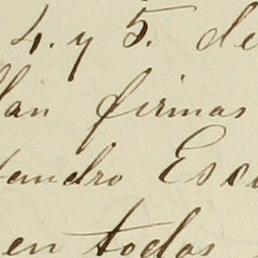 4. y 5. de
llan firmas
andro Esc
en todos